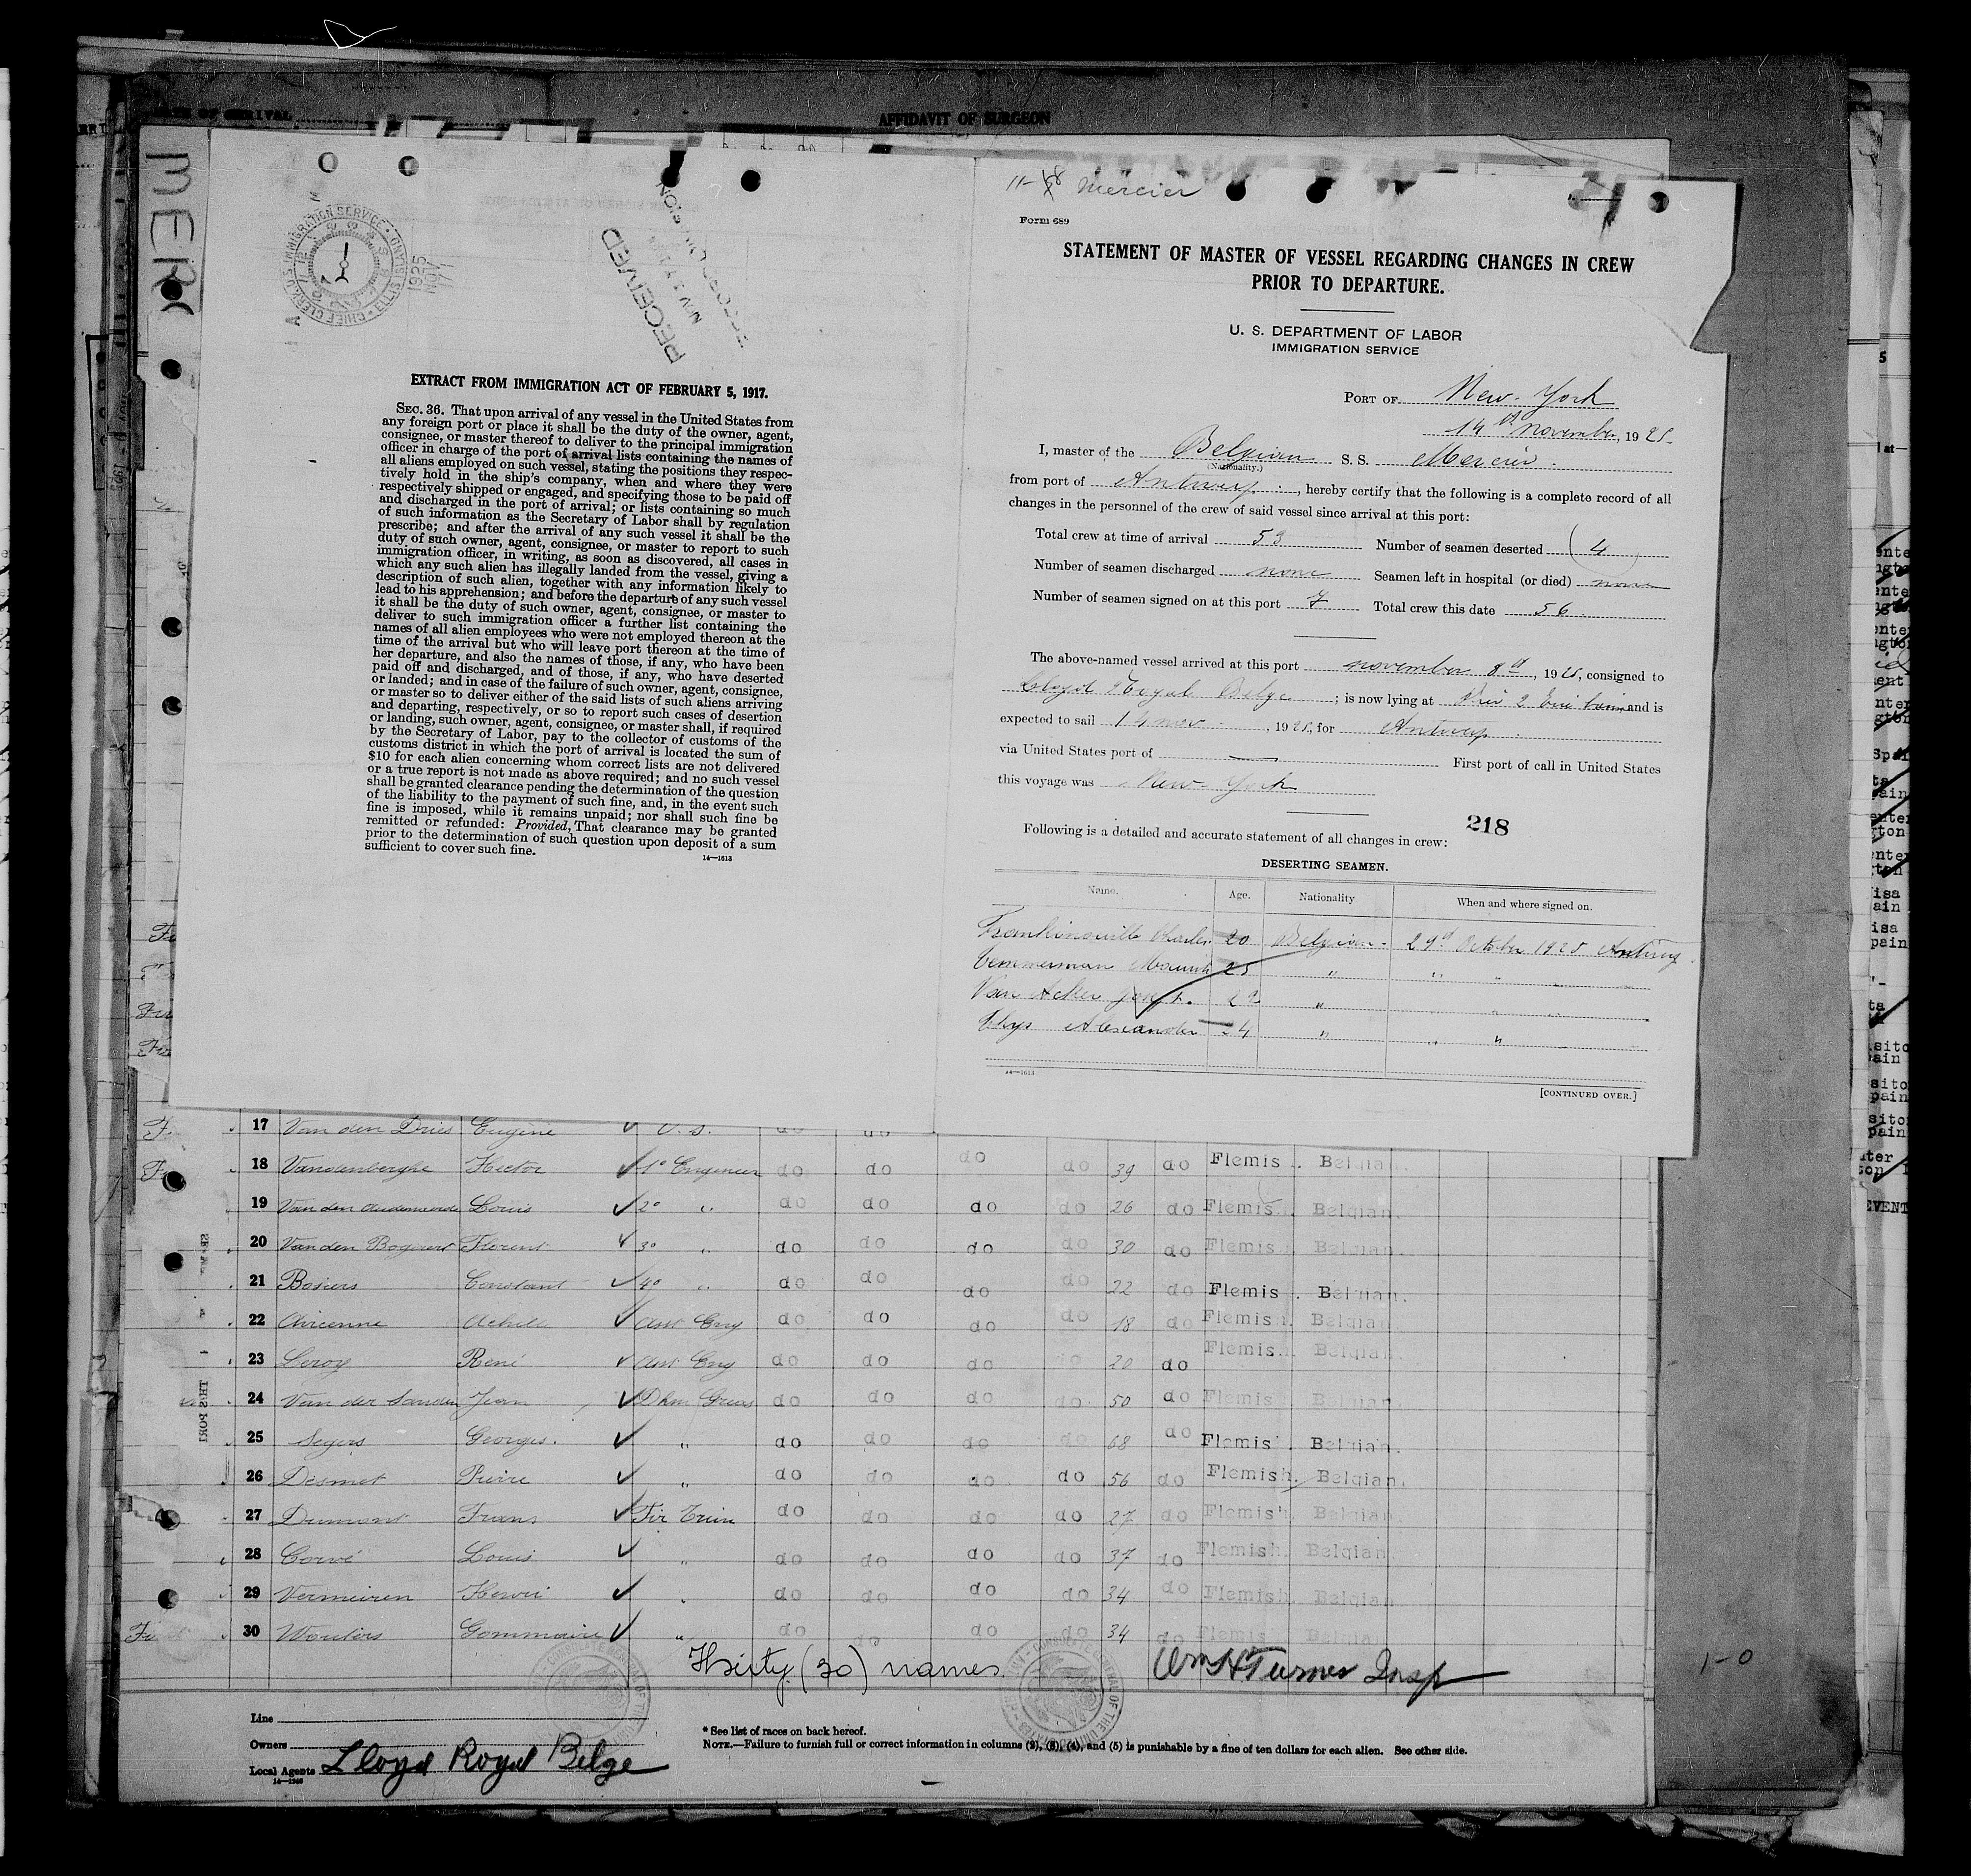 DATE OF ARRIVAL
AFFIDAVIT OF SURGEON
MERC
U. S. IMMIGRATION SERVICE
ELLIS ISLAND
CHIEF CLERK
1925
NOV
RECEIVED
NOV
RECORD DIVISION
EXTRACT FROM IMMIGRATION ACT OF FEBRUARY 5, 1917.
SEC. 36. That upon arrival of any vessel in the United States from
any foreign port or place it shall be the duty of the owner, agent,
consignee, or master thereof to deliver to the principal immigration
officer in charge of the port of arrival lists containing the names of
all aliens employed on such vessel, stating the positions they respec-
tively hold in the ship's company, when and where they were
respectively shipped or engaged, and specifying those to be paid off
and discharged in the port of arrival; or lists containing so much
of such information as the Secretary of Labor shall by regulation
prescribe; and after the arrival of any such vessel it shall be the
duty of such owner, agent, consignee, or master to report to such
immigration officer, in writing, as soon as discovered, all cases in
which any such alien has illegally landed from the vessel, giving a
description of such alien, together with any information likely to
lead to his apprehension; and before the departure of any such vessel
it shall be the duty of such owner, agent, consignee, or master to
deliver to such immigration officer a further list containing the
names of all alien employees who were not employed thereon at the
time of the arrival but who will leave port thereon at the time of
her departure, and also the names of those, if any, who have been
paid off and discharged, and of those, if any, who have deserted
or landed; and in case of the failure of such owner, agent, consignee,
or master so to deliver either of the said lists of such aliens arriving
and departing, respectively, or so to report such cases of desertion
or landing, such owner, agent, consignee, or master shall, if required
by the Secretary of Labor, pay to the collector of customs of the
customs district in which the port of arrival is located the sum of
$10 for each alien concerning whom correct lists are not delivered
or a true report is not made as above required; and no such vessel
shall be granted clearance pending the determination of the question
of the liability to the payment of such fine, and, in the event such
fine is imposed, while it remains unpaid; nor shall such fine be
remitted or refunded: Provided, That clearance may be granted
prior to the determination of such question upon deposit of a sum
sufficient to cover such fine.
14—1613
11-8 Mercier
Form 689
STATEMENT OF MASTER OF VESSEL REGARDING CHANGES IN CREW
PRIOR TO DEPARTURE.
U. S. DEPARTMENT OF LABOR
IMMIGRATION SERVICE
PORT OF New-York
14th november, 1925.
I, master of the Belgian S. S. Mercier.
(Nationality.)
from port of Antwerp., hereby certify that the following is a complete record of all
changes in the personnel of the crew of said vessel since arrival at this port:
Total crew at time of arrival 53 Number of seamen deserted 4
Number of seamen discharged none Seamen left in hospital (or died) none
Number of seamen signed on at this port 7 Total crew this date 56.
The above-named vessel arrived at this port november 8d, 1925, consigned to
Lloyd Royal Belge; is now lying at Pier 2 Erie basin and is
expected to sail 14 nov., 1925, for Antwerp.
via United States port of — First port of call in United States
this voyage was New-York
218
Following is a detailed and accurate statement of all changes in crew:
DESERTING SEAMEN.
Name. Age. Nationality When and where signed on.
Charles. 20 Belgian- 29d October 1925 Antwerp
Temmerman 25 " " "
Van Acker Josef. " " "
Thys Alexander 24 " " "
14—1613
[CONTINUED OVER.]
17 Van den Dries Eugène do do
18 Vandenberghe Hector 1° Engineer do do do do 39 do Flemish. Belgian.
19 Louis 2° " do do do do 26 do Flemish. Belgian.
20 Van den Bogaert Florent 3° " do do do do 30 do Flemish. Belgian.
21 Bosiers Constant 4° " do do do do 22 do Flemish. Belgian.
22 Avicenne Achille Asst Eng do do do do 18 do Flemish. Belgian.
23 Leroy René Asst Eng do do do do 20 do Flemish. Belgian.
24 Van der Sanden Jean Dkm Greas do do do do 50 do Flemish. Belgian.
25 Segers Georges. " do do do do 68 do Flemish. Belgian.
26 Desmet Pierre " do do do do 56 do Flemish. Belgian.
27 Dumont Frans Fir Trim do do do do 27 do Flemish. Belgian.
28 Corvé Louis " do do do do 37 do Flemish. Belgian
29 Vermeiren Henri " do do do do 34 do Flemish. Belgian.
30 Wouters Gommaire " do do do do 34 do Flemish Belgian.
Thirty (30) names Wm H Turner Insp
1-0
Line
Owners
Local Agents Lloyd Royal Belge
14—1240
* See list of races on back hereof.
NOTE.—Failure to furnish full or correct information in columns (2), (3), (4), and (5) is punishable by a fine of ten dollars for each alien. See other side.